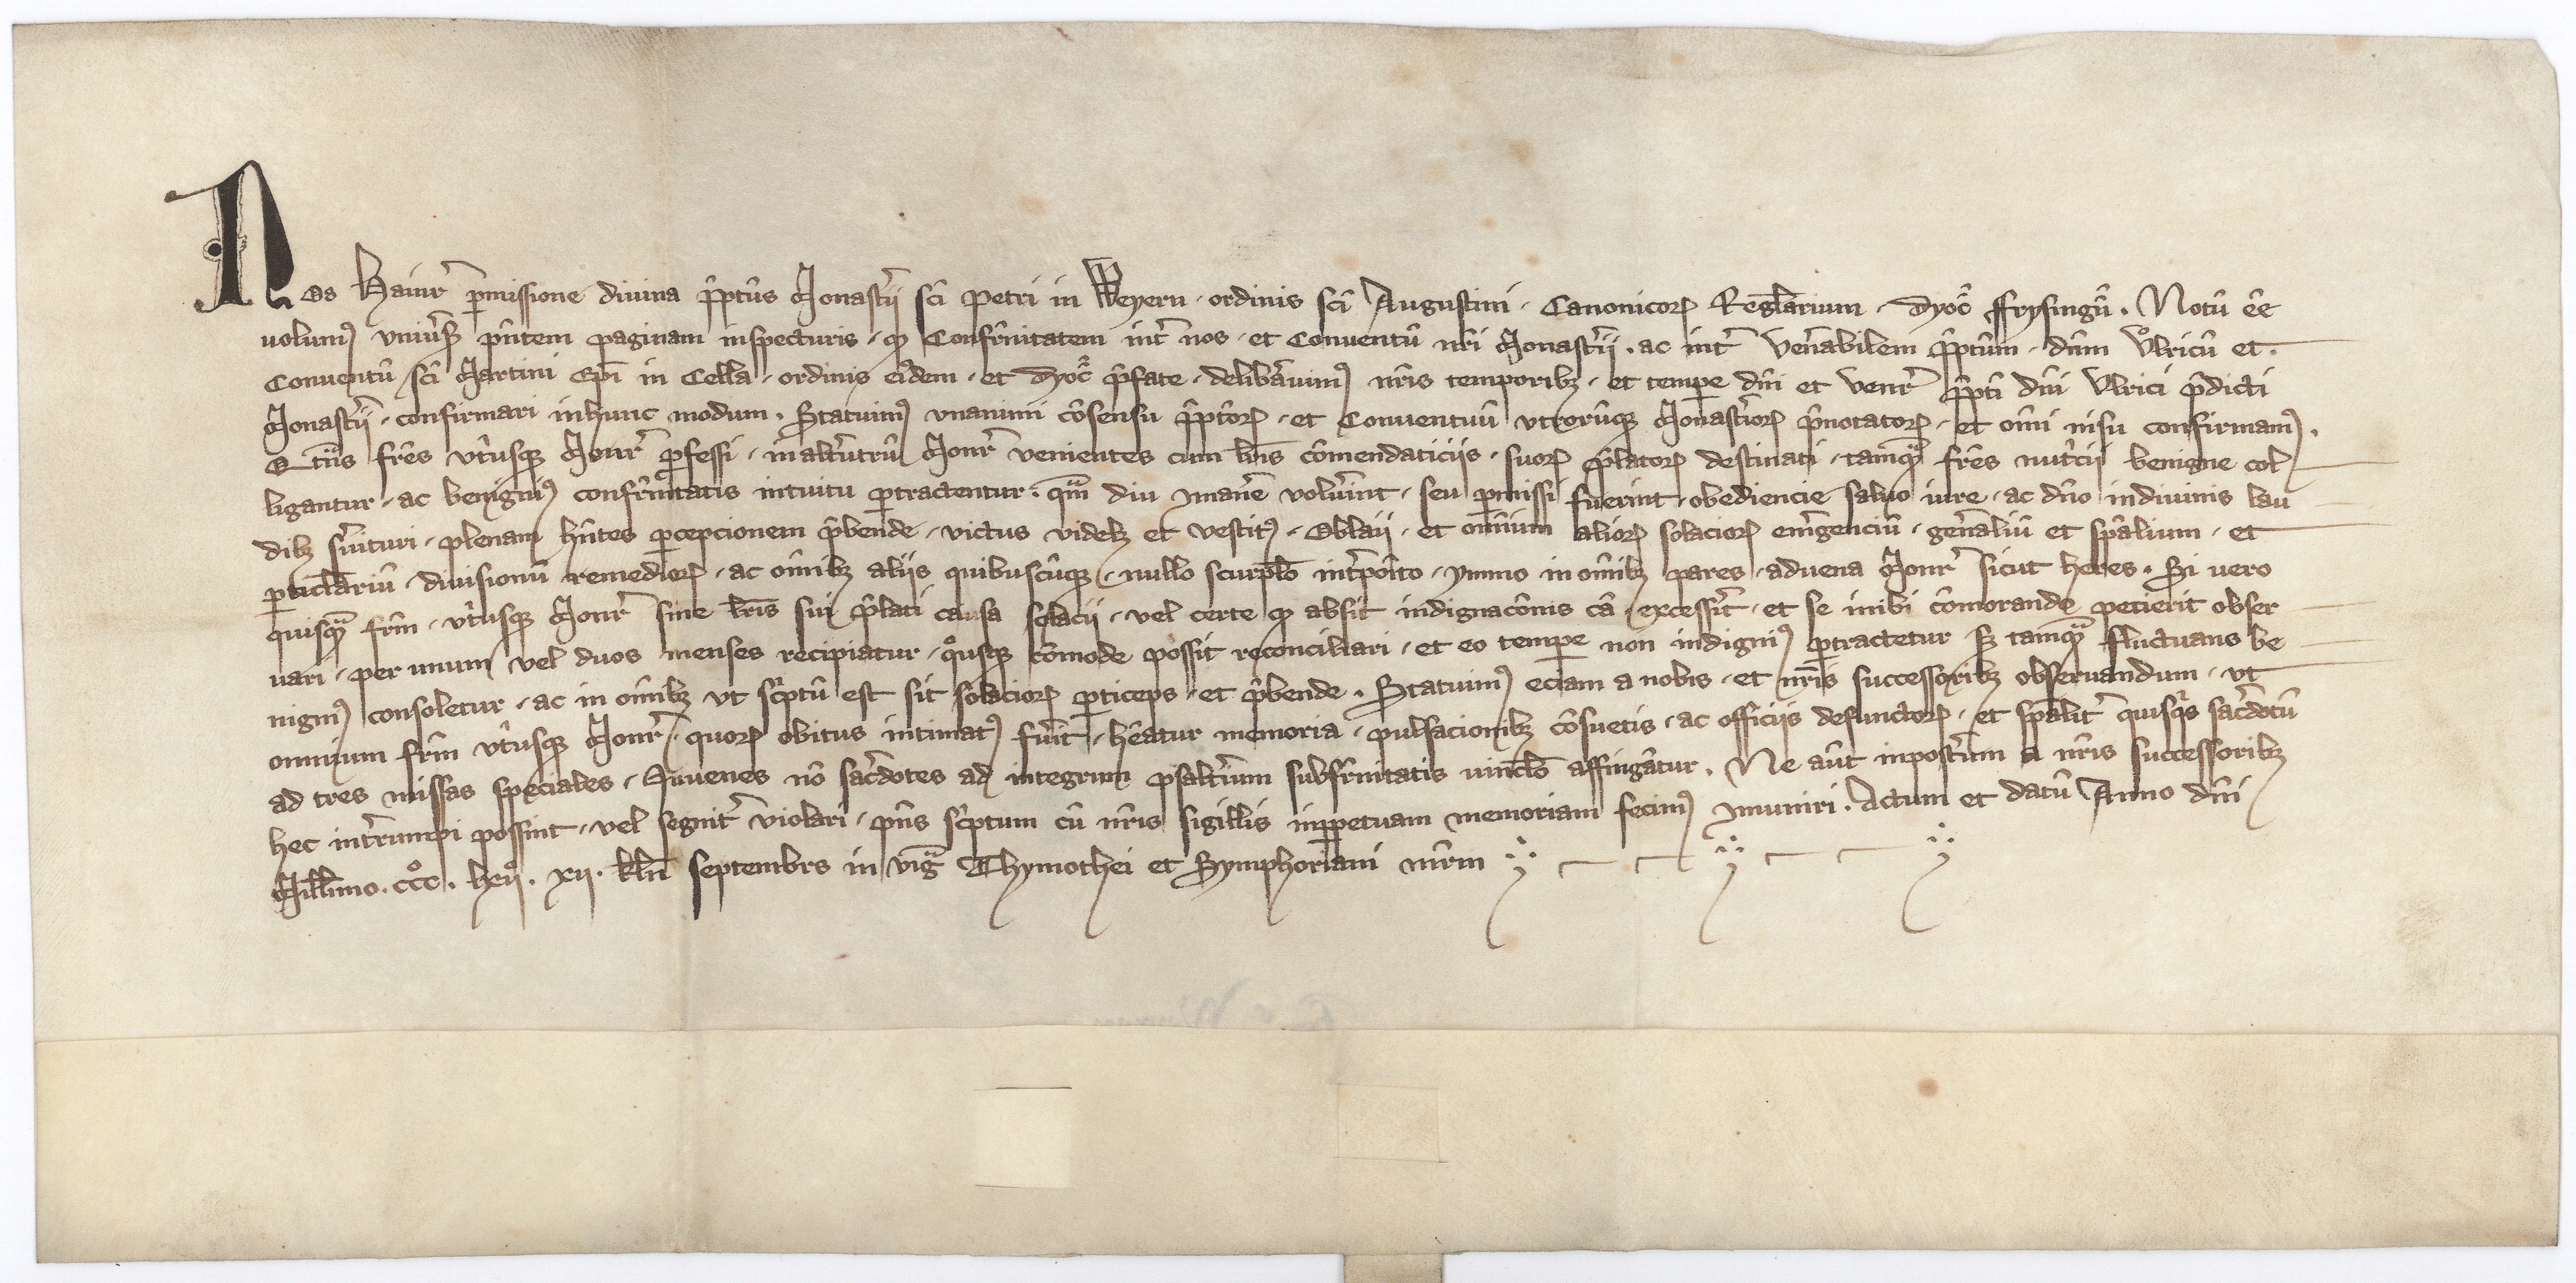 Nos Hainr̄ p̱missione diuina p̄pt̄us Monast̄ii sc̄i Petri in Weyern · ordinis sc̄i Augustini · Canonicoꝝ Regl̄arium · dyoc̄ ffrysingn̄ · Notū ēē
volumꝰ vniūsꝭ pn̄tem paginam inspecturis · qꝫ Confrn̄itatem int̄ nos · et Conuentū nr̄i Monast̄ii · ac int̄ Ven̄abilem p̄pt̄um · dn̄m Vͦlricū et ·
Conuentū sc̄i Martini Ep̄i in Cella · ordinis eīdem · et dyoc̄ p̄fate · delib̄auimꝰ nr̄is temporibꝫ · et temꝑe dn̄i et Venr̄ p̄pt̄i dn̄i Vlrici p̄dicti
Monast̄ii · confirmari inhunc modum · Statuimꝰ vnanimi cōsensu p̄pt̄oꝝ · et Conuentuū vtrorūqꝫ Monast̄ioꝝ p̄notatoꝝ · et om̄i nisu confirmamꝰ ·
Qten̄s fr̄es vt̄usqꝫ Monr̄ ꝓfessi · inalt̄utrū Monr̄ venientes cum lr̄is cōmendaticiis · suoꝝ p̄latoꝝ destinati · tamqᵃꝫ fr̄es nut̄cii benigne col
ligantur · ac benignꝰ confrn̄itatis intuitu ꝑtractentur · qᵃm diu Iman̄e voluīnt · seu ꝑmissi fuerint · obediencie saluo iure · ac dn̄o indiuinis lau
dibꝫ s̄uituri · plenam hn̄tes ꝑcepcionem p̄bende · victus videlꝫ et vestitꝰ · Oblaii · et om̄ium alioꝝ solacioꝝ em̄genciū · gen̄aliū et sp̄alium · et
ꝑticl̄ariū · diuisionū remedioꝝ · ac om̄ibꝫ aliis quibuscūqꝫ · nullo scurpl̄o int̄poīto · ymmo in om̄ibꝫ pares · aduena Monr̄ sicut heres · Si vero
quisqᵃꝫ fr̄m · vt̄usqꝫ Monr̄ sine lr̄is sui p̄lati causa solacii · vel certe qꝫ absit indignacōnis cā · excessīt · et se inibi cōmorande petierit obser
uari · per unum vel duos menses recipiatur · qͦusqꝫ cōmode possit reconciliari · et eo temꝑe non indignꝰ ꝑtractetur sꝫ tamqᵃꝫ fluctuans be
nignꝰ consoletur · ac in om̄ibꝫ vt sc̄ptū est sit solacioꝝ ꝑticeps · et p̄bende · Statuimꝰ eciam a nobis · et nr̄is successoribꝫ obseruandum · vt
omnium fr̄m vt̄usqꝫ Monr̄ · quoꝝ obitus intimatꝰ fuīt · hēatur memoria · pulsacionibꝫ cōsuetis · ac officiis defunctoꝝ · et sp̄alit̄ quisqⁱs sac̄dotū
ad tres missas speciales · Iuuenes nō sac̄dotes ad integrum psalt̄ium subfrn̄itatis uincl̄o affingātur · Ne aūt inpost̄um a nr̄is successoribꝫ
hec int̄rumpi possint · vel segnit̄ violari · pn̄s sc̄ptum cū nr̄is sigillis inꝑpetuam memoriam fecimꝰ Imuniri · Actum et datū Anno dn̄i
Mill̄imo · cccͦ · lxxijͦ · xij · kln̄ septembrs in vigᵃ Thymothei et Symphoriani mr̄m